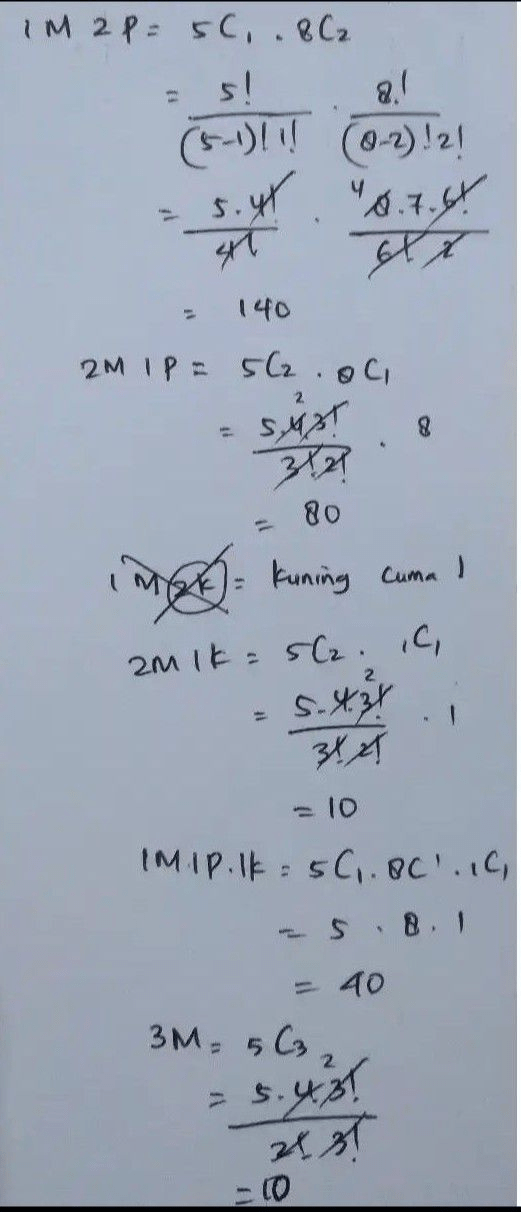 1 M 2 P = 5C₁ . 8C₂
= 5! / (5-1)! 1! . 8! / (8-2)! 2!
= 5.4! / 4! . ⁴ 8.7.6! / 6! 2
= 140
2M 1P = 5C₂ . 8C₁
= 5.4.3! ² / 3! 2! . 8
= 80
1 M 2K = kuning cuma 1
2M 1K = 5C₂ . ₁C₁
= 5.4.3! ² / 3! 2! . 1
= 10
1M.1P.1K = 5C₁ . 8C¹ . ₁C₁
= 5 . 8 . 1
= 40
3M = 5C₃
= 5.4.3! ² / 2! 3!
= 10